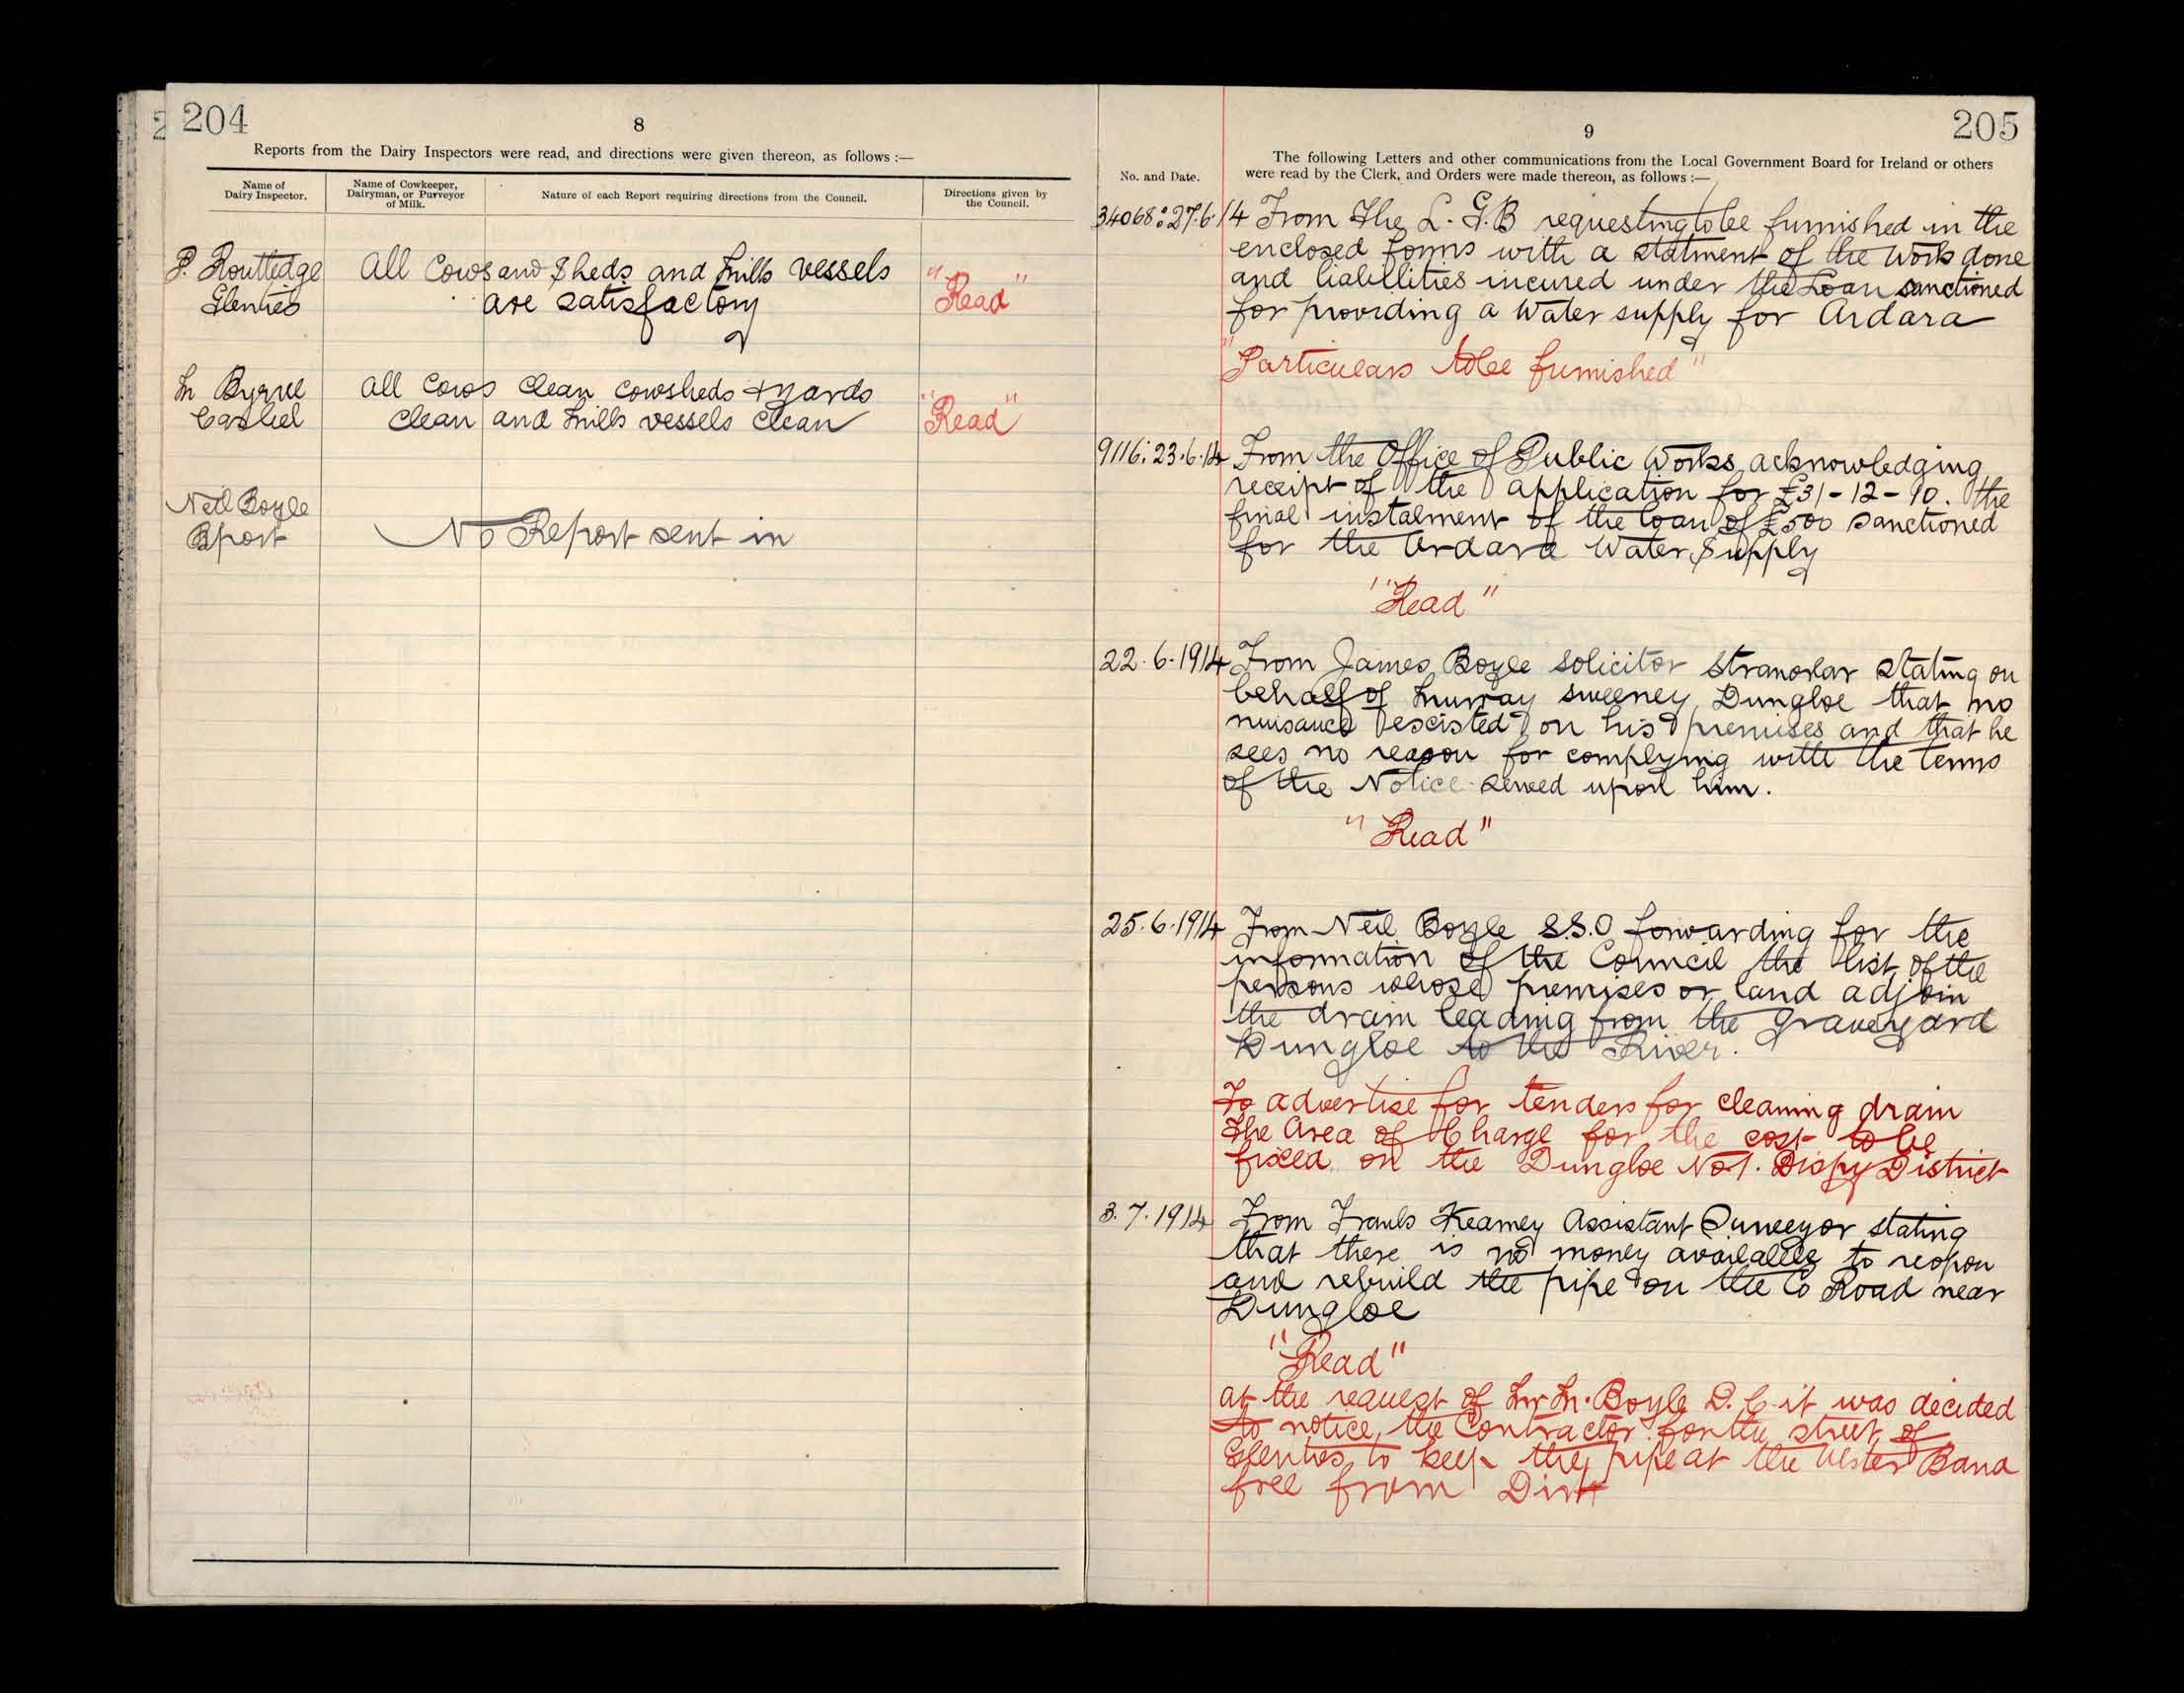 204
8
Reports from the Dairy Inspectors were read, and directions were given thereon, as follows :—
Name of Dairy Inspector.
Name of Cowkeeper, Dairyman, or Purveyor of Milk.
Nature of each Report requiring directions from the Council.
Directions given by the Council.
P. Routledge All Cows and Sheds and Milk vessels "Read"
Glenties are satisfactory
M Byrne All Cows Clean Cowsheds + yards
Cashel Clean and Milk vessels Clean "Read"
Neil Boyle
No Report sent in
205
9
No. and Date.
The following Letters and other communications from the Local Government Board for Ireland or others
were read by the Clerk, and Orders were made thereon, as follows :—
34068:27.6.14 From The L. G. B requesting to be furnished in the
enclosed forms with a statment of the work done
and liabillities incured under the Loan sanctioned
for providing a Water supply for Ardara
"Particulars to be furnished"
9116: 23.6.14 From the Office of Public Works acknowledging
receipt of the application for £31-12-10. the
final instalment of the loan of £500 sanctioned
for the Ardara Water Supply
"Read"
22.6.1914 From James Boyle solicitor Stranorlar stating on
behalf of Murray Sweeney Dungloe that no
nuisance existed on his premises and that he
sees no reason for complying with the terms
of the Notice served upon him.
"Read"
25.6.1914 From Neil Boyle S.S.O forwarding for the
information of the Council the list of the
persons whose premises or land adjoin
the drain leading from the graveyard
Dungloe to the River.
To advertise for tenders for cleaning drain
The Area of Charge for the cost to be
fixed on the Dungloe No 1. Dispy District
3.7.1914 From Frank Kearney Assistant Surveyor stating
that there is no money available to reopen
and rebuild the pipe on the Co Road near
Dungloe
"Read"
at the request of Mr M. Boyle D. C it was decided
to notice the Contractor for the street of
Glenties to keep the pipe at the Ulster Bank
free from Dirt